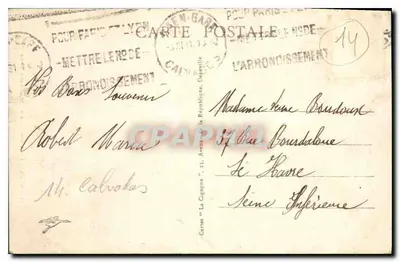 POUR PARIS ET LYON
-METTRE LE No DE-
L'ARRONDISSEMENT
CAEN-GARE
CARTE POSTALE
POUR PARIS ET LYON
-METTRE LE No DE-
L'ARRONDISSEMENT
14
Nos Bons Souvenirs
Robert Marie
14. Calvados
Madame Veuve Boudoux
37 Rue Bourdaloue
Le Havre
Seine Inférieure
Cartes "La Cigogne", 21, Avenue de la République, Deauville
CPARAMA